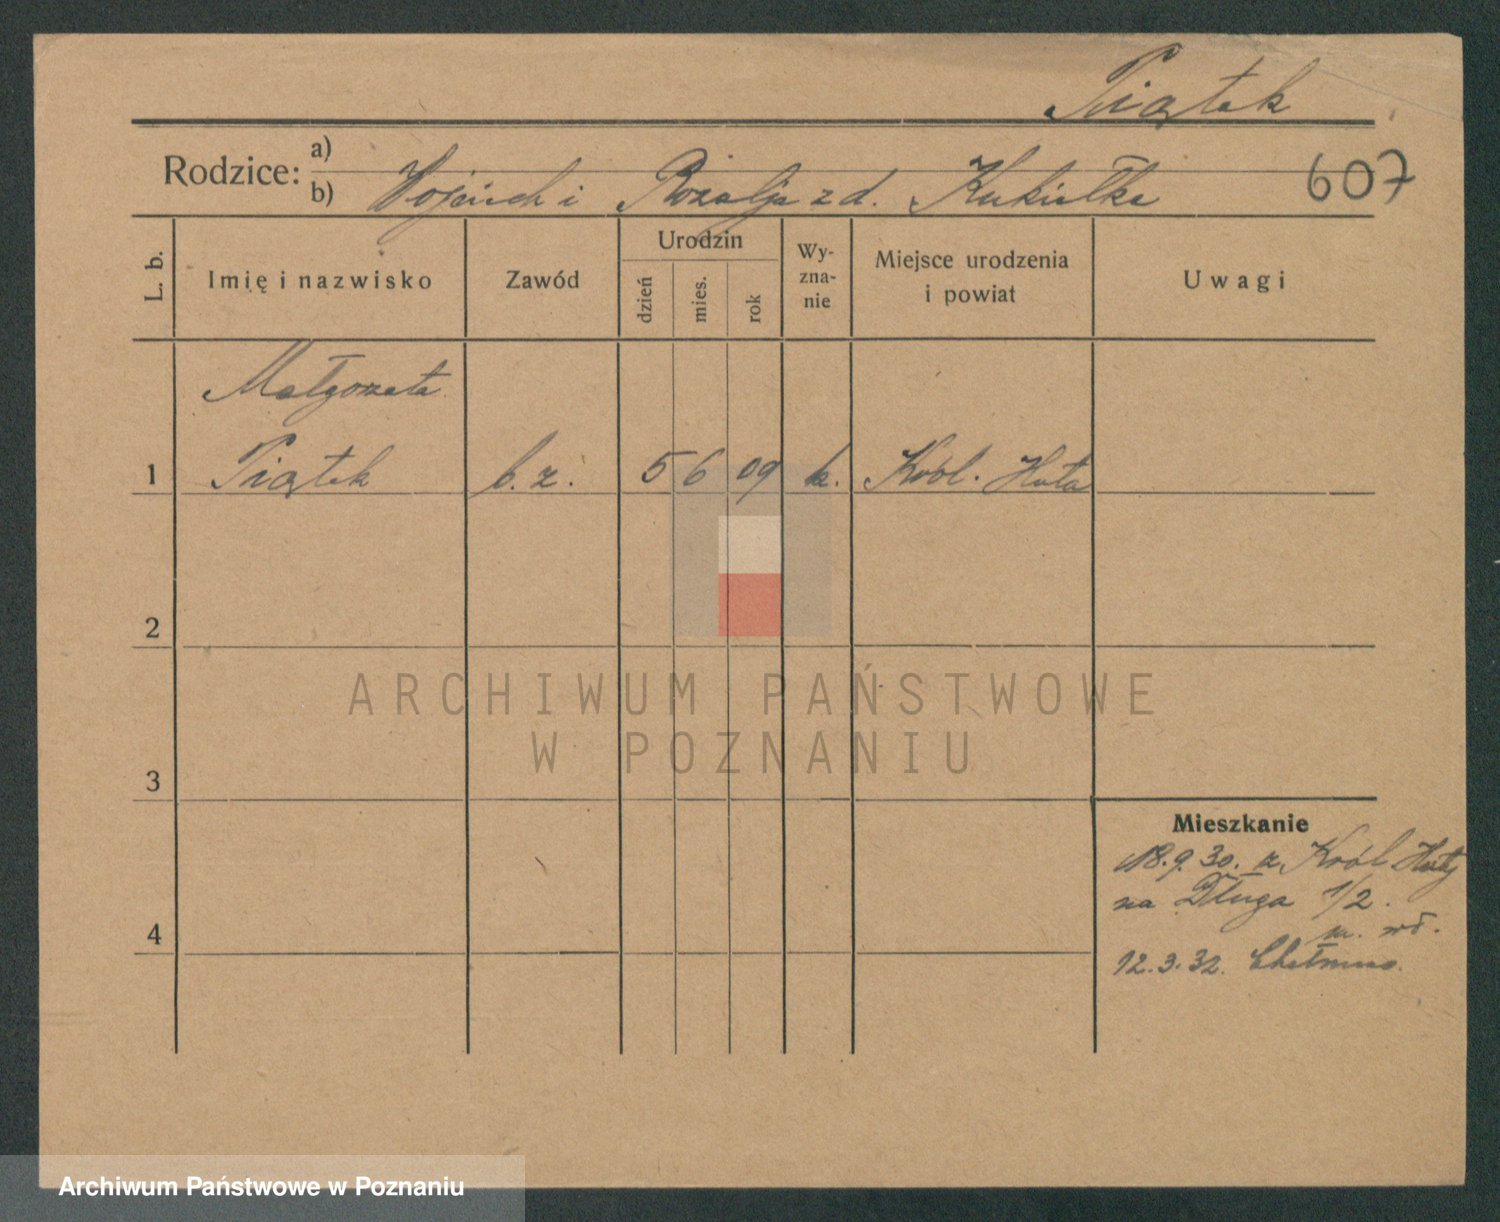 Piątek
Rodzice: a)
b) Wojciech i Rozalja z d. Kukiełka
607
L. b.
Imię i nazwisko
Zawód
Urodzin
dzień
mies.
rok
Wy-
zna-
nie
Miejsce urodzenia
i powiat
Uwagi
Małgorzata
1 Piątek b. z. 5 6 09 k. Król. Huta
2
ARCHIWUM PAŃSTWOWE
W POZNANIU
3
Mieszkanie
18.9.30. z Król Huty
na Długa 1/2.
4
12.3.32. Chełmno.
Archiwum Państwowe w Poznaniu